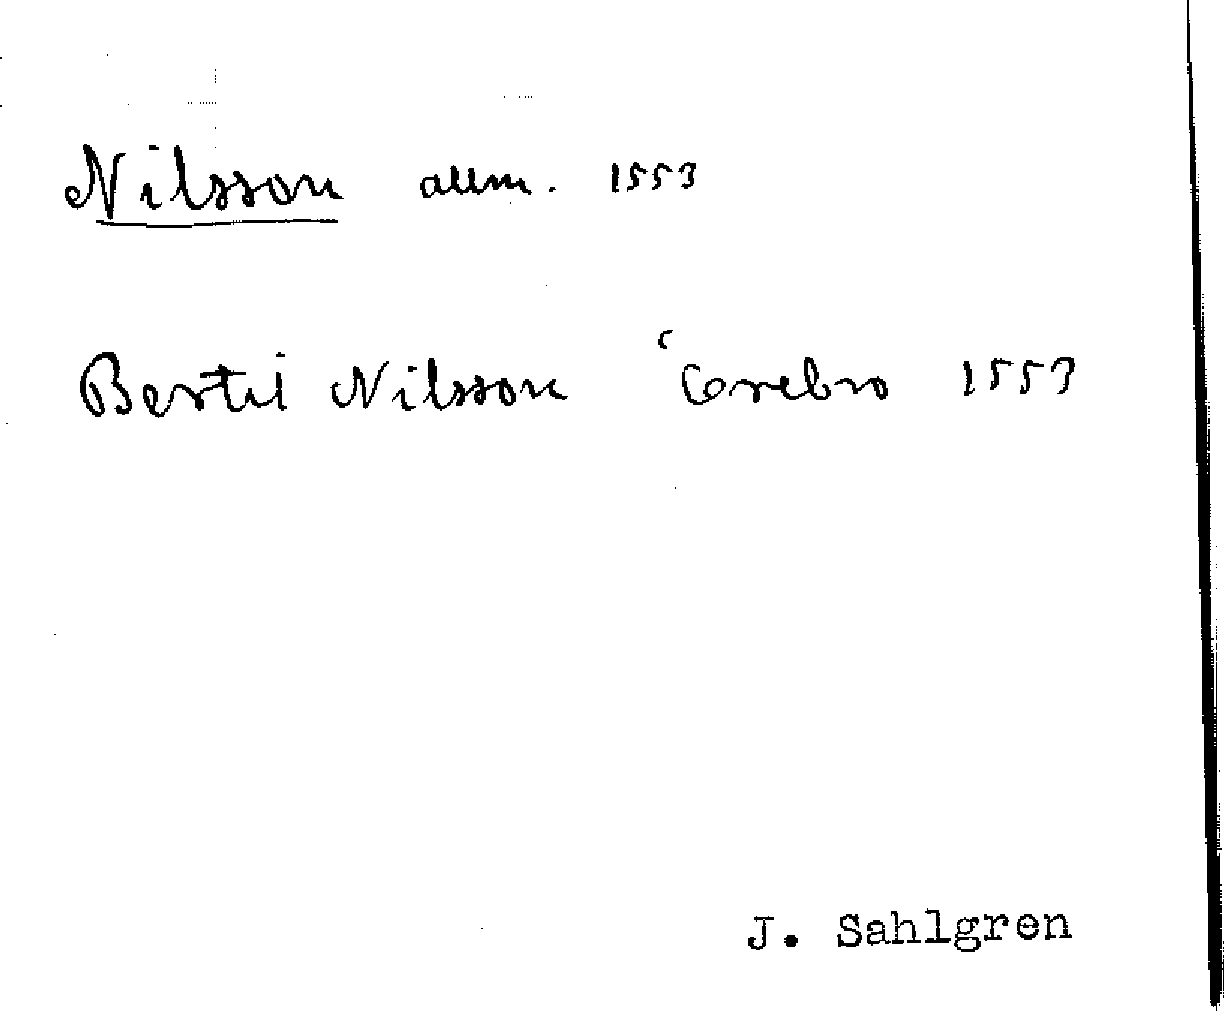 Nilsson allm. 1553
Bertil Nilsson Örebro 1553
J. Sahlgren